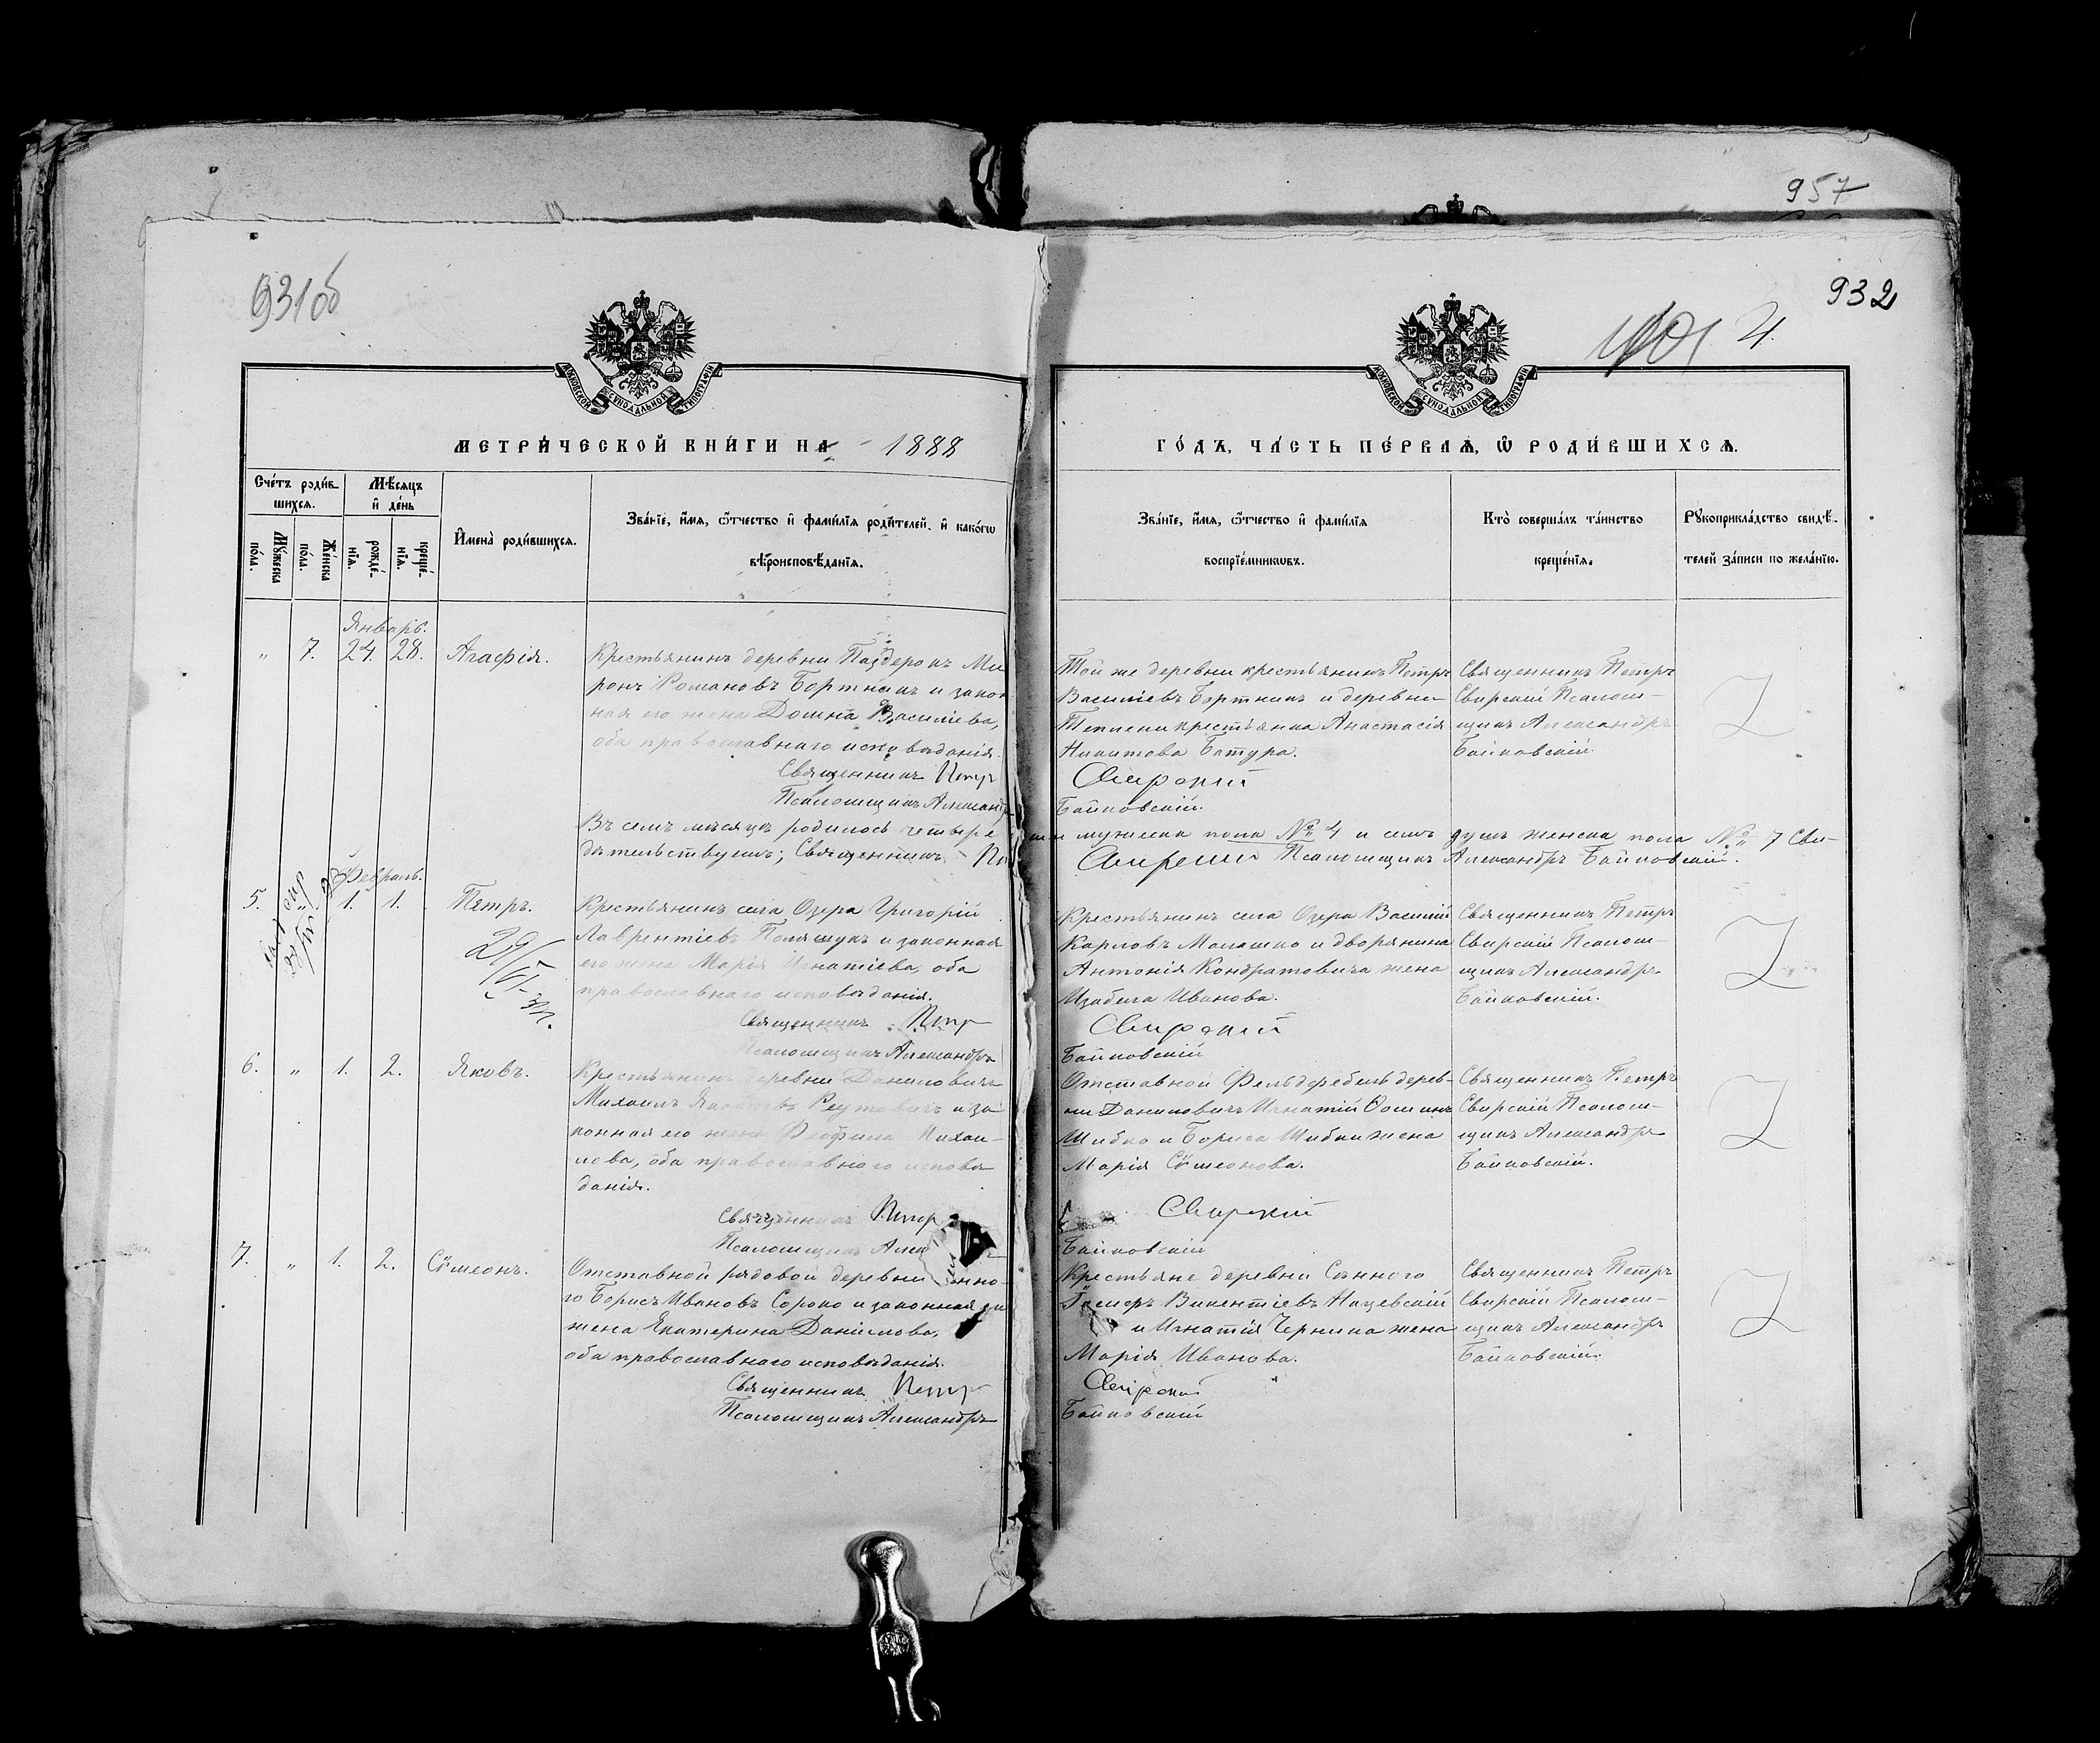 957
931об
932
4.
МОСКОВСКОЙ СѴНОДАЛЬНОЙ ТИПОГРАФІИ
МОСКОВСКОЙ СѴНОДАЛЬНОЙ ТИПОГРАФІИ
МЕТРИ́ЧЕСКОЙ КНИ́ГИ НА 1888
ГО́ДЪ, ЧА́СТЬ ПЕ́РВАѦ, Ѽ РОДИ́ВШИХСѦ.
Сче́тъ роди́в-
шихсѧ.
Мѣ́сѧцъ
и҆ де́нь
Мꙋ́жеска
по́ла.
Же́нска
по́ла.
рожде́-
нїѧ.
креще́-
нїѧ.
И҆мена̀ роди́вшихсѧ.
Зва́нїе, и҆́мѧ, ѻ҆́тчество и҆ фами́лїѧ роди́телей, и҆ како́гѡ
вѣ́роисповѣ́данїѧ.
Зва́нїе, и҆́мѧ, ѻ҆́тчество и҆ фами́лїѧ
воспрїе́мникѡвъ.
Кто̀ соверша́лъ та́инство
креще́нїѧ.
Рꙋкоприкла́дство свидѣ́-
телей за́писи по жела́нїю.
Январь.
" 7. 24. 28. Агафія.
Крестьянинъ деревни Паздеронъ Ми
ронъ Романовъ Бортникъ и закон
ная его жена Домна Василіева,
оба православнаго исповѣданія.
Священникъ Петръ
Псаломщикъ Александръ
Той же деревни крестьянинъ Петръ
Василіевъ Бортникъ и деревни
крестьянка Анастасія
Никитова Батура.
Свирскій
Байковскій.
Священникъ Петръ
Свирскій Псалом-
щикъ Александръ
Байковскій.
Въ семъ мѣсяцѣ родилось четыре души мужеска пола № 4 и семь душъ женска пола № 7 Сви-
дѣтельствуемъ; Священникъ Петръ Свирскій Псаломщикъ Александръ Байковскій.
Февраль.
5. " 1. 1. Петръ.
Крестьянинъ села Озера Григорій
Лаврентіевъ Полящукъ и законная
его жена Марія Игнатіева, оба
православнаго исповѣданія.
Священникъ Петръ
Псаломщикъ Александръ
Крестьянинъ села Озера Василій
Карловъ Малашко и дворянина
Антонія Кондратовича жена
Изабела Иванова.
Свирскій
Байковскій
Священникъ Петръ
Свирскій Псалом-
щикъ Александръ
Байковскій.
6. " 1. 2. Яковъ.
Крестьянинъ деревни Даниловичъ
Михаилъ Яковлевъ Реутовичъ и за-
конная его жена Феофила Михаи-
лова, оба православнаго исповѣ
данія.
Священникъ Петръ
Псаломщикъ Алек
Отставной Фельдфебель дерев-
ни Даниловичъ Игнатій Ѳоминъ
Шибко и Бориса Шибки жена
Марія Сѵмеонова.
Свирскій
Байковскій
Священникъ Петръ
Свирскій Псалом-
щикъ Александръ
Байковскій.
7. " 1. 2. Сѵмеонъ.
Отставной рядовой деревни нно-
го Борисъ Ивановъ Сороко и законная его
жена Екатерина Даніилова,
оба православнаго исповѣданія.
Священникъ Петръ
Псаломщикъ Александръ
Крестьяне деревни Сѣнного
Викентіевъ Нацевскій
и Игнатія Черника жена
Марія Иванова.
Свирскій
Байковскій
Священникъ Петръ
Свирскій Псалом-
щикъ Александръ
Байковскій.